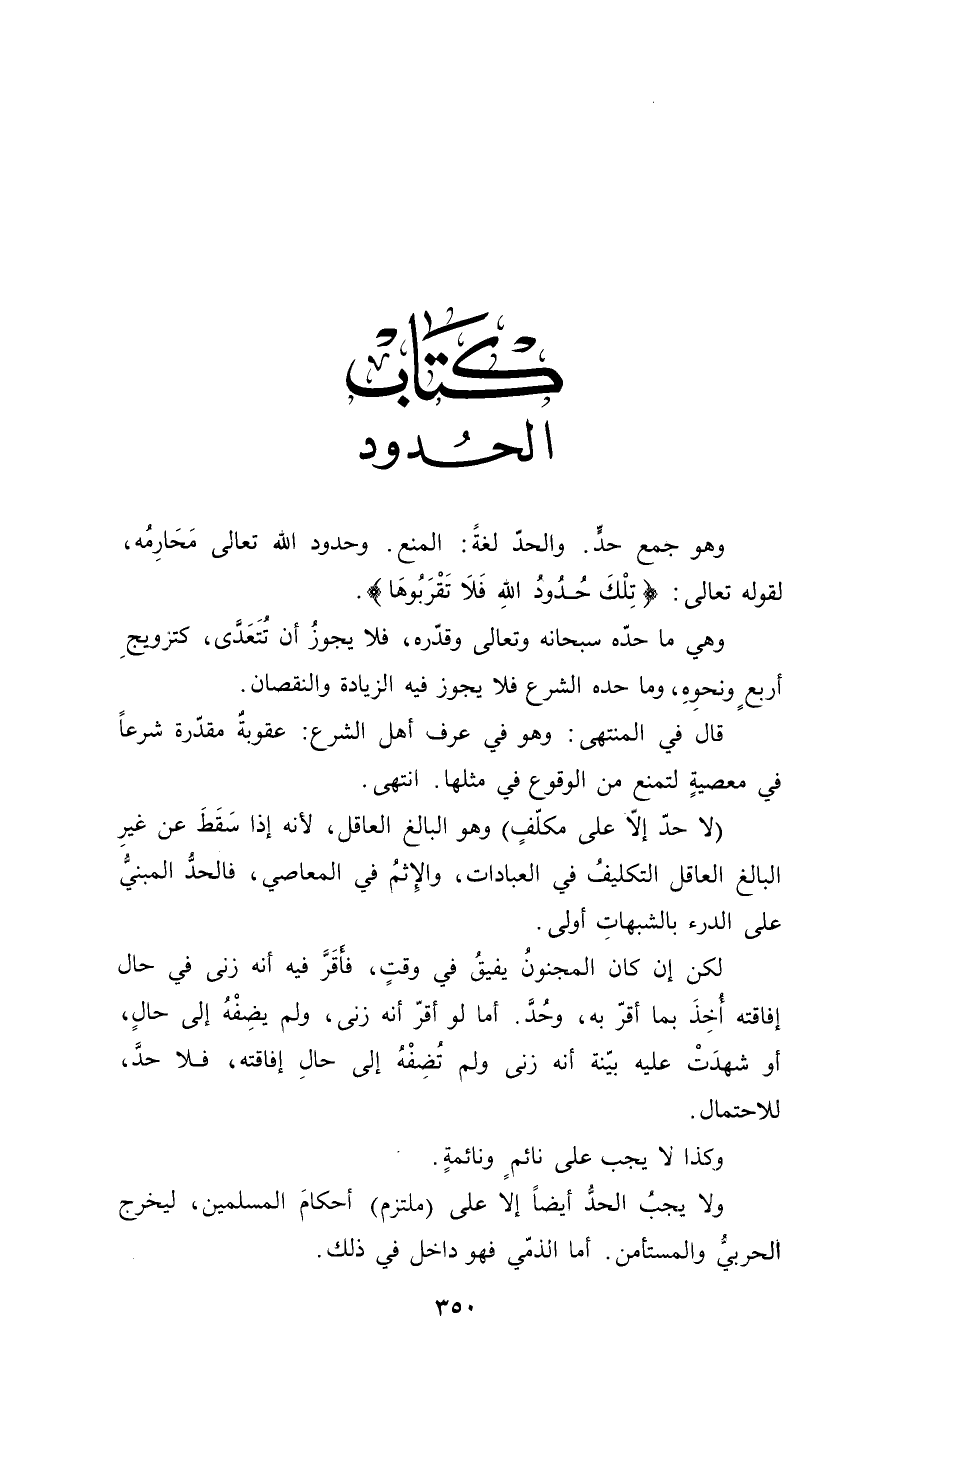 كتاب
الحُدود
وهو جمع حدٍّ. والحدّ لغةً: المنع. وحدود الله تعالى مَحَارِمُه،
لقوله تعالى: ﴿تِلْكَ حُـدُودُ اللهِ فَلَا تَقْرَبُوهَا﴾.
وهي ما حدّه سبحانه وتعالى وقدّره، فلا يجوزُ أن تُتَعَدَّى، كتزويجِ
أربعٍ ونحوِهِ، وما حده الشرع فلا يجوز فيه الزيادة والنقصان.
قال في المنتهى: وهو في عرف أهل الشرع: عقوبةٌ مقدّرة شرعاً
في معصيةٍ لتمنع من الوقوع في مثلها. انتهى.
(لا حدّ إلاّ على مكلّفٍ) وهو البالغ العاقل، لأنه إذا سَقَطَ عن غيرِ
البالغ العاقل التكليفُ في العبادات، والإِثمُ في المعاصي، فالحدُّ المبنيُّ
على الدرء بالشبهاتِ أولى.
لكن إن كان المجنونُ يفيقُ في وقتٍ، فأَقَرَّ فيه أنه زنى في حال
إفاقته أُخِذَ بما أقرّ به، وحُدَّ. أما لو أقرّ أنه زنى، ولم يضِفْهُ إلى حالٍ،
أو شهدَتْ عليه بيّنة أنه زنى ولم تُضِفْهُ إلى حالِ إفاقته، فـلا حدَّ،
للاحتمال.
وكذا لا يجب على نائمٍ ونائمةٍ.
ولا يجبُ الحدُّ أيضاً إلا على (ملتزم) أحكامَ المسلمين، ليخرج
الحربيُّ والمستأمن. أما الذمّي فهو داخل في ذلك.
٣٥٠